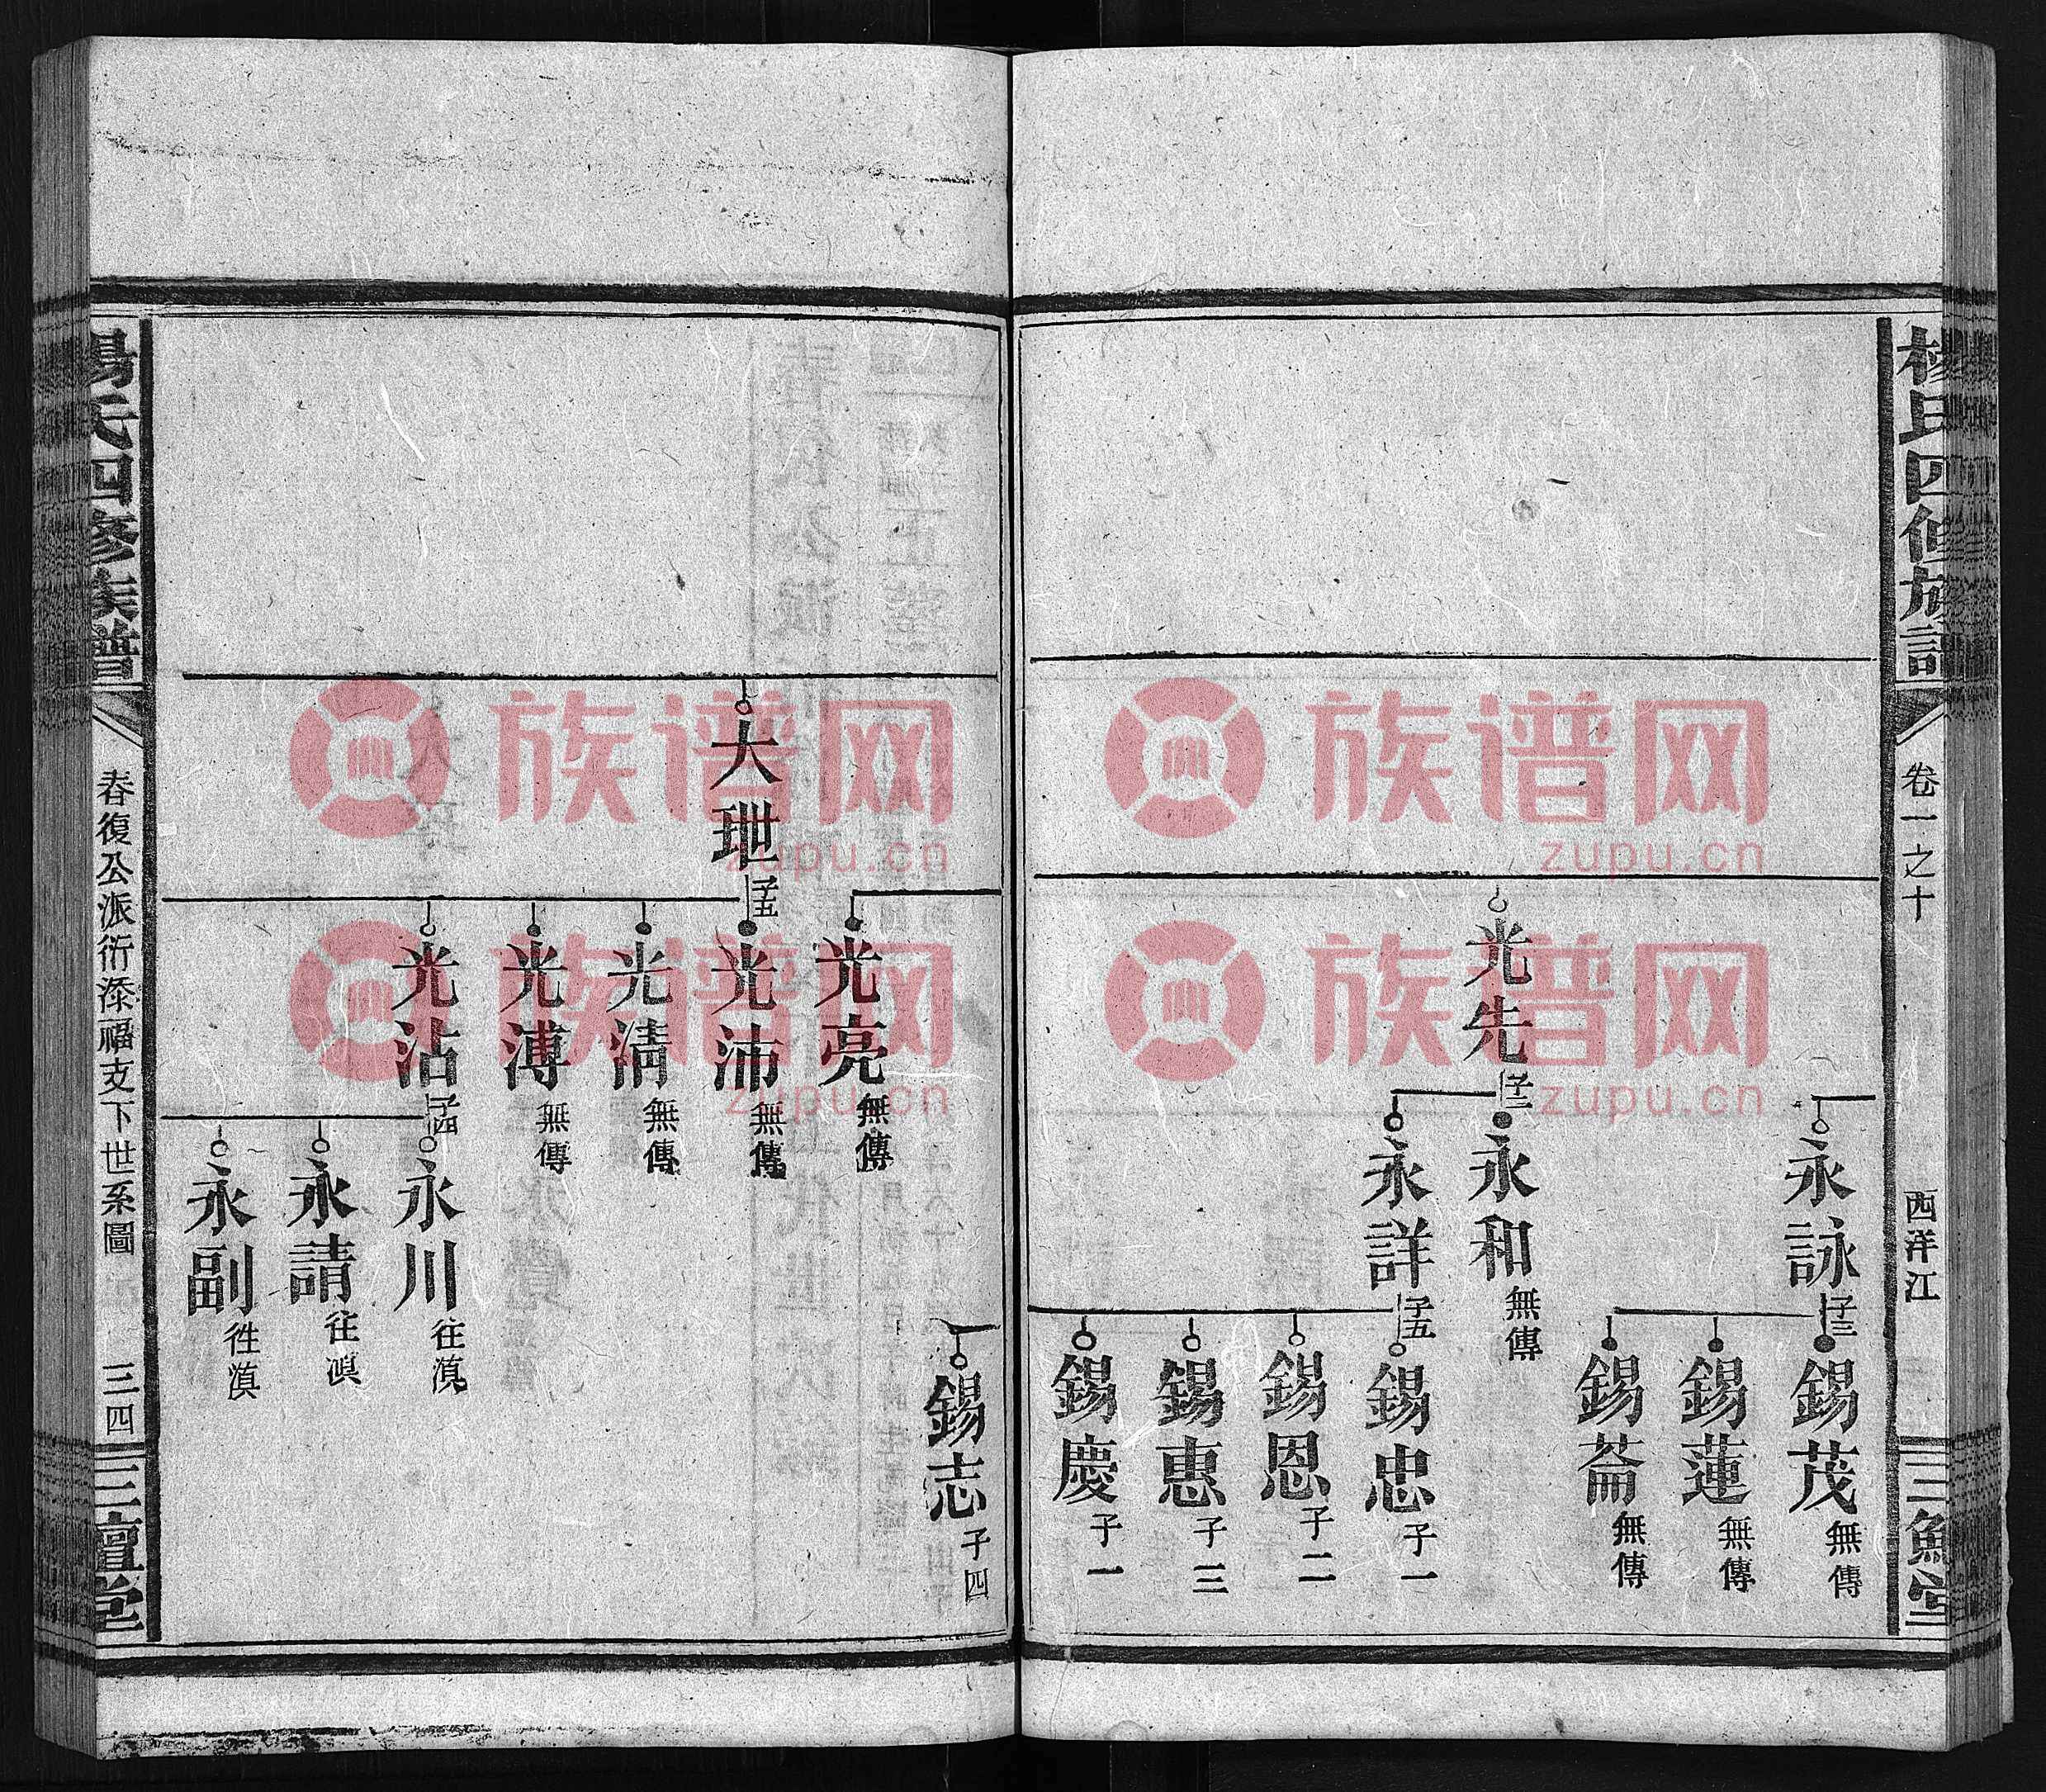 楊氏四修族譜
卷一之十
西洋江
三鱣堂
永詠 子三
錫茂 無傳
錫蓮 無傳
錫菕 無傳
光先 子二
永和 無傳
永詳 子五
錫忠 子一
錫恩 子二
錫惠 子三
錫慶 子一
錫志 子四
光亮 無傳
大玭 子五
光沛 無傳
光清 無傳
光溥 無傳
光沾 子四
永川 往滇
永請 往滇
永副 往滇
楊氏四修族譜
春復公派衍添福支下世系圖
三四
三鱣堂
族谱网
zupu.cn
族谱网
zupu.cn
族谱网
zupu.cn
族谱网
zupu.cn